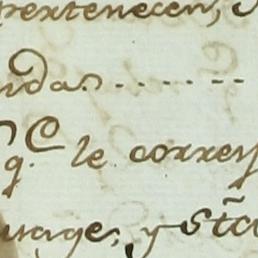 pertenecen,
ndas......
q.e le corres
usages, y Sta